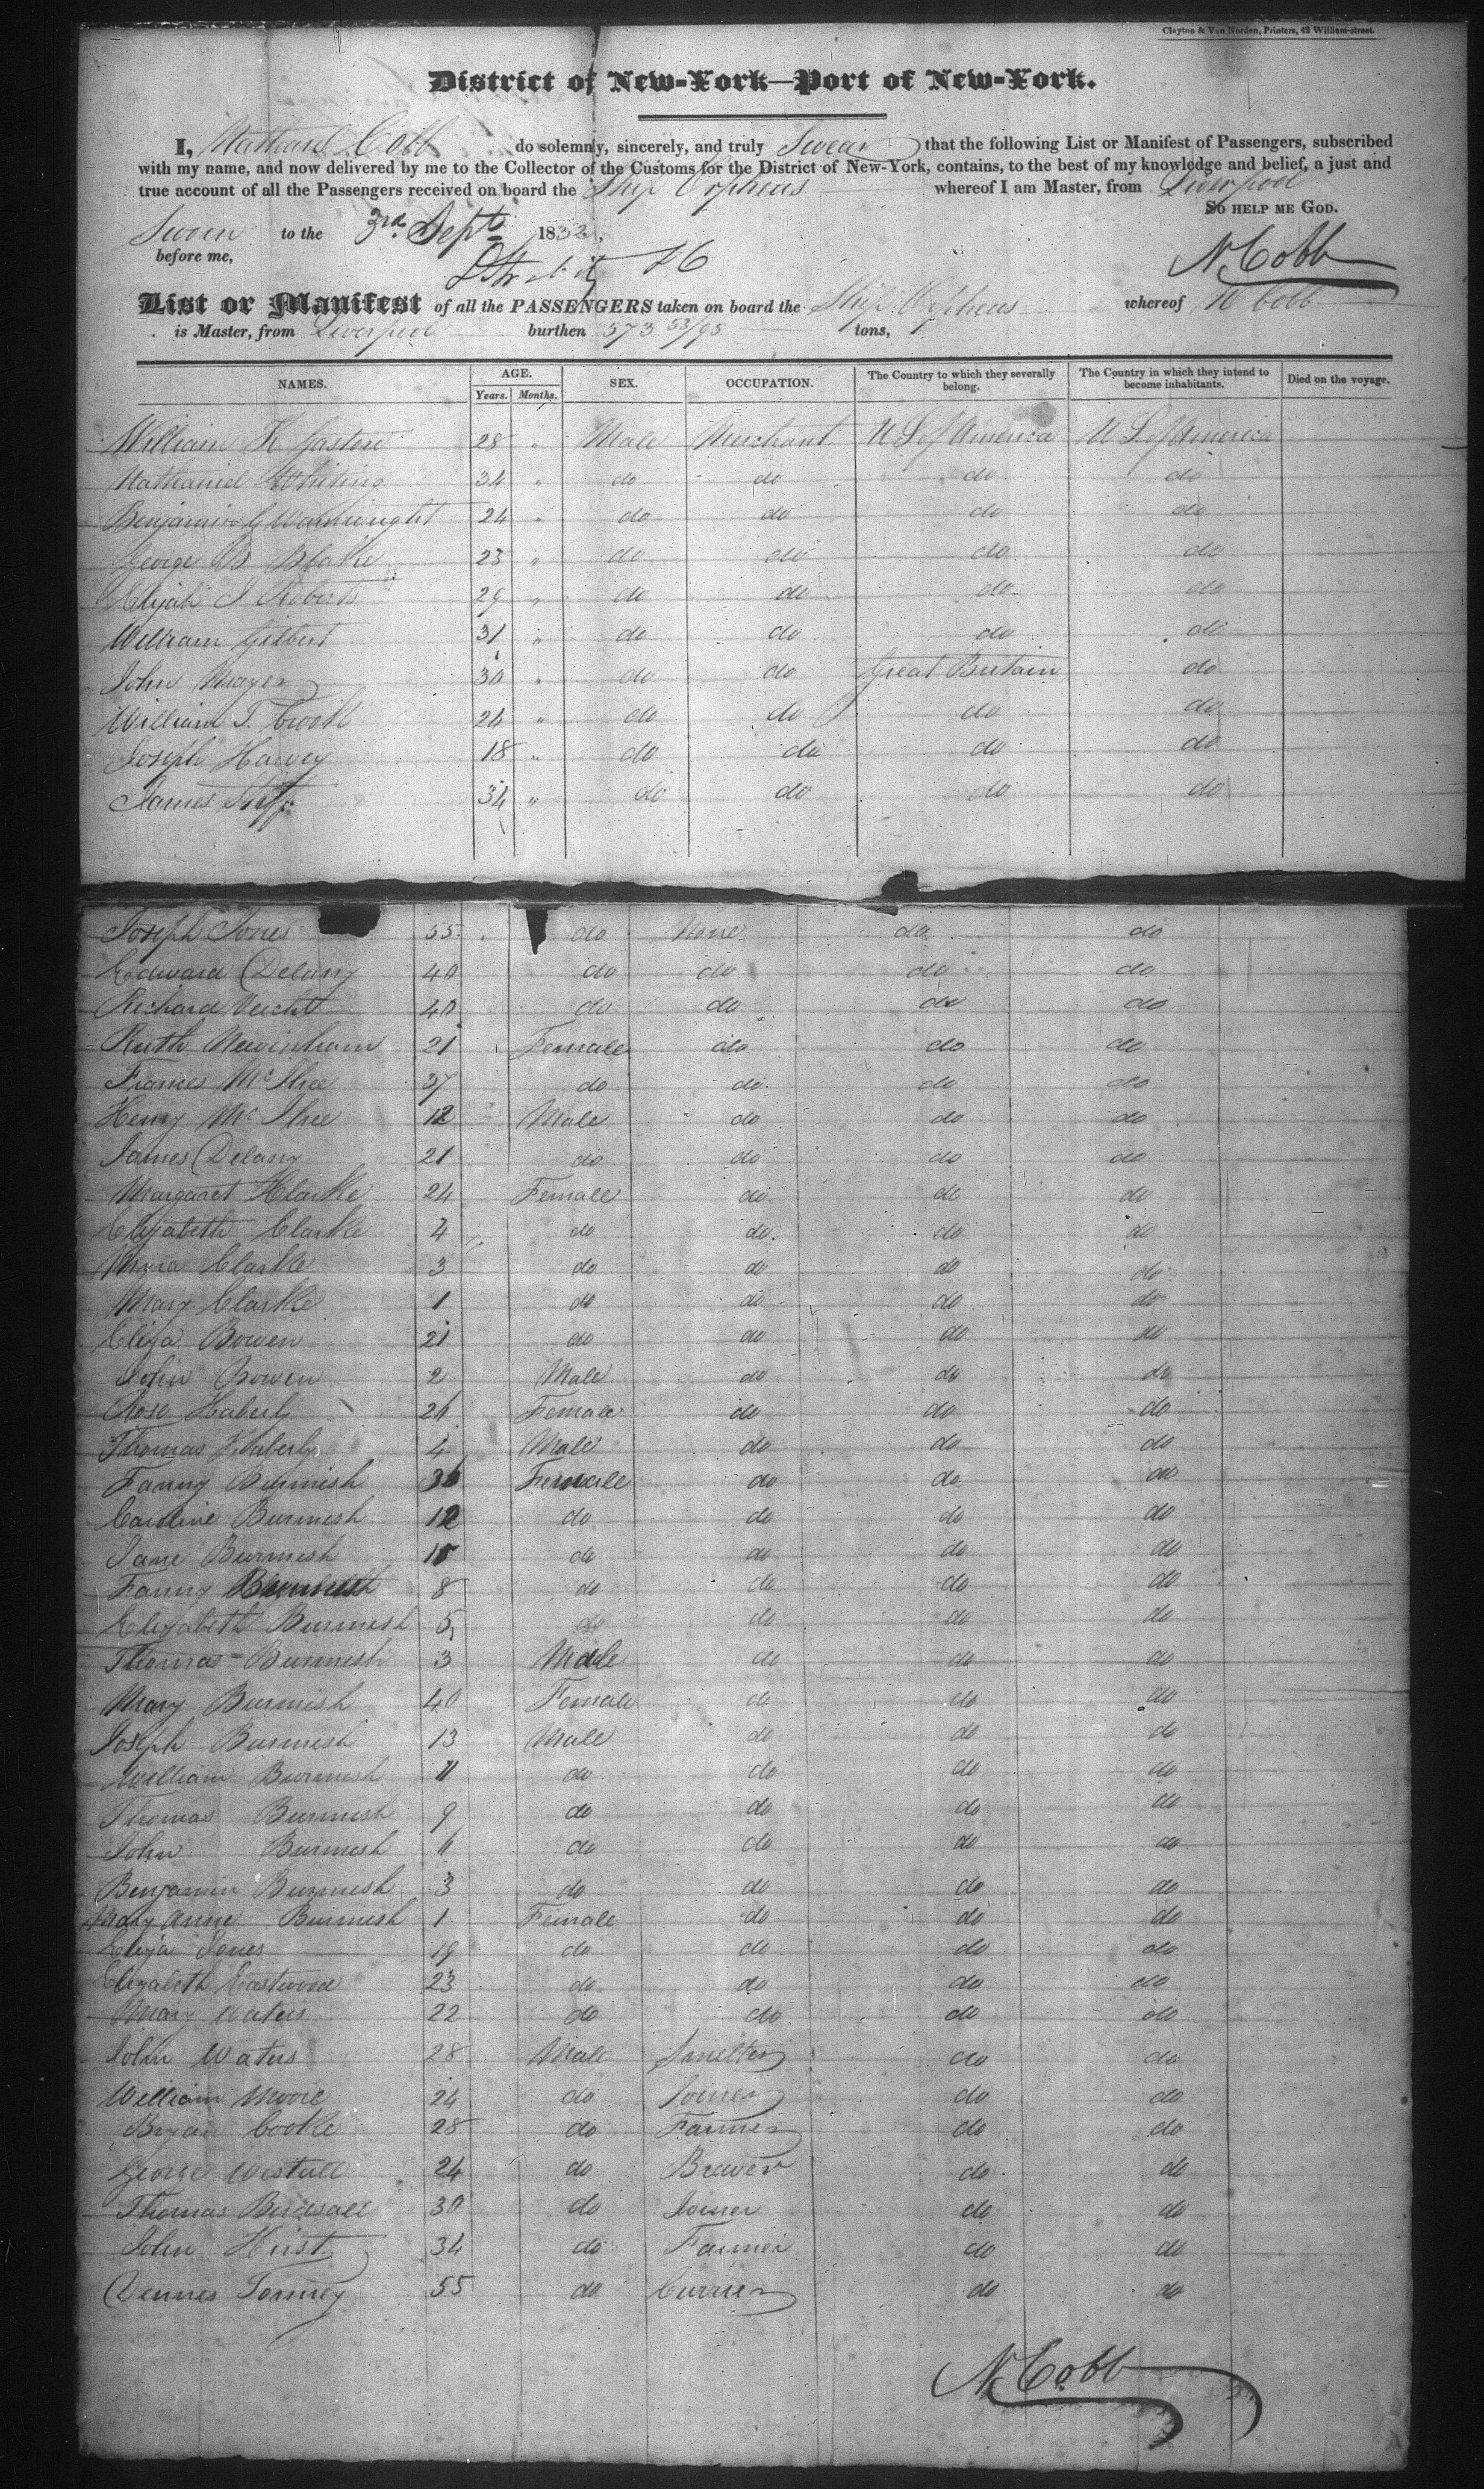 Clayton & Van Norden, Printers, 42 William-street.
District of New-York—Port of New-York.
I, Nathan Cobb do solemnly, sincerely, and truly Swear that the following List or Manifest of Passengers, subscribed
with my name, and now delivered by me to the Collector of the Customs for the District of New-York, contains, to the best of my knowledge and belief, a just and
true account of all the Passengers received on board the Ship Orpheus whereof I am Master, from Liverpool
So help me God.
Sworn to the 3rd Sept 1832.
before me,
N. Cobb
List or Manifest of all the PASSENGERS taken on board the Ship Orpheus whereof N Cobb
is Master, from Liverpool burthen 573 53/95 tons,
NAMES. AGE. SEX. OCCUPATION. The Country to which they severally belong. The Country in which they intend to become inhabitants. Died on the voyage.
Years. Months.
William K Gaston 28 " Male Merchant U S of America U S of America
Nathaniel Whiting 34 " do do do do
Benjamin G Wainwright 24 " do do do do
George B Blake 23 " do do do do
Elijah J Roberts 29 " do do do do
William Gilbert 31 " do do do do
John Mayer 30 " do do Great Britain do
William T. Crook 24 " do do do do
Joseph Harvey 18 " do do do do
James 34 " do do do do
Joseph Jones 55 do None do do
Edward Delany 40 do do do do
Richard Veicht 40 do do do do
Ruth Newinham 21 Female do do do
Frances McIlree 37 do do do do
Henry McIlree 12 Male do do do
James Delany 21 do do do do
Margaret Clarke 24 Female do do do
Elizabeth Clarke 4 do do do do
Clarke 3 do do do do
Mary Clarke 1 do do do do
Eliza Bowen 21 do do do do
John Bowen 2 Male do do do
Rose Haberly Female do do do
Thomas Haberly 4 Male do do do
Fanny Burmish 36 Female do do do
Caroline Burmish 12 do do do do
Jane Burmish do do do do
Fanny Burmish 8 do do do do
Elizabeth Burmish 5 do do do do
Thomas Burmish 3 Male do do do
Mary Burmish 40 Female do do do
Joseph Burmish 13 Male do do do
William Burmish 11 do do do do
Thomas Burmish 9 do do do do
John Burmish do do do do
Benjamin Burmish 3 do do do do
Mary Anne Burmish 1 Female do do do
Eliza Jones 19 do do do do
Elizabeth Eastwood 23 do do do do
Mary Waters 22 do do do do
John Waters 28 Male Smelter do do
William Moore 24 do Joiner do do
Bryan Cooke 28 do Farmer do do
George Westall 24 do Brewer do do
Thomas Birdsall 30 do Joiner do do
John Hirst 34 do Farmer do do
Dennes Tormey 55 do Currier do do
N. Cobb